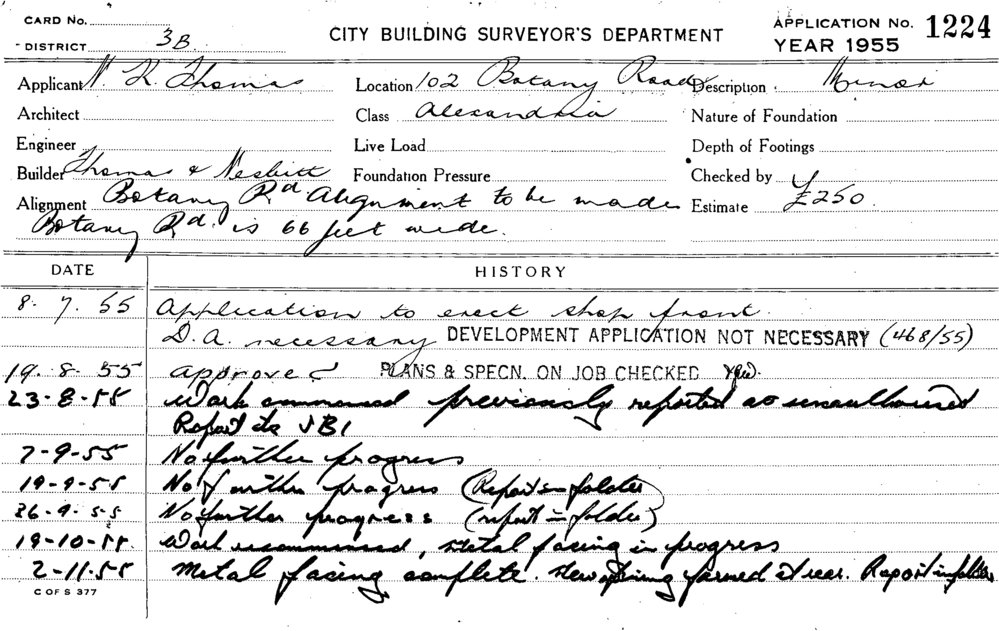 CARD No.
- DISTRICT 3B
CITY BUILDING SURVEYOR'S DEPARTMENT
APPLICATION No. 1224
YEAR 1955
Applicant N. K. Thomas
Location 102 Botany Road
Description Minor
Architect
Class Alexandria
Nature of Foundation
Engineer
Live Load
Depth of Footings
Builder Thomas & Nesbitt
Foundation Pressure
Checked by
Alignment Botany Rd Alignment to be made
Estimate £250.
Botany Rd. is 66 feet wide.
DATE HISTORY
8. 7. 55 Application to erect shop front.
D.A. necessary DEVELOPMENT APPLICATION NOT NECESSARY (468/55)
19. 8. 55 approved PLANS & SPECN. ON JOB CHECKED
23-8-55 Work commenced previously reported as unauthorised
Report to
7-9-55 No further progress
19-9-55 No further progress (Report in folder)
26-9-55 No further progress (report in folder)
19-10-55. Work recommenced, metal facing in progress
2-11-55 Metal facing complete. New opening formed at rear. Report in folder
C OF S 377